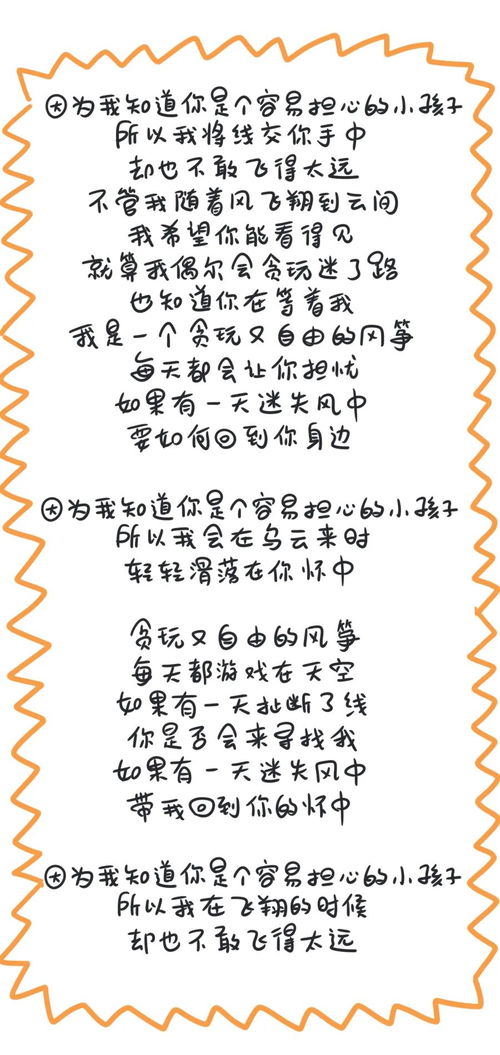 因为我知道你是个容易担心的小孩子
所以我将线交你手中
却也不敢飞得太远
不管我随着风飞翔到云间
我希望你能看得见
就算我偶尔会贪玩迷了路
也知道你在等着我
我是一个贪玩又自由的风筝
每天都会让你担忧
如果有一天迷失风中
要如何回到你身边
因为我知道你是个容易担心的小孩子
所以我会在乌云来时
轻轻滑落在你怀中
贪玩又自由的风筝
每天都游戏在天空
如果有一天扯断了线
你是否会来寻找我
如果有一天迷失风中
带我回到你的怀中
因为我知道你是个容易担心的小孩子
所以我在飞翔的时候
却也不敢飞得太远